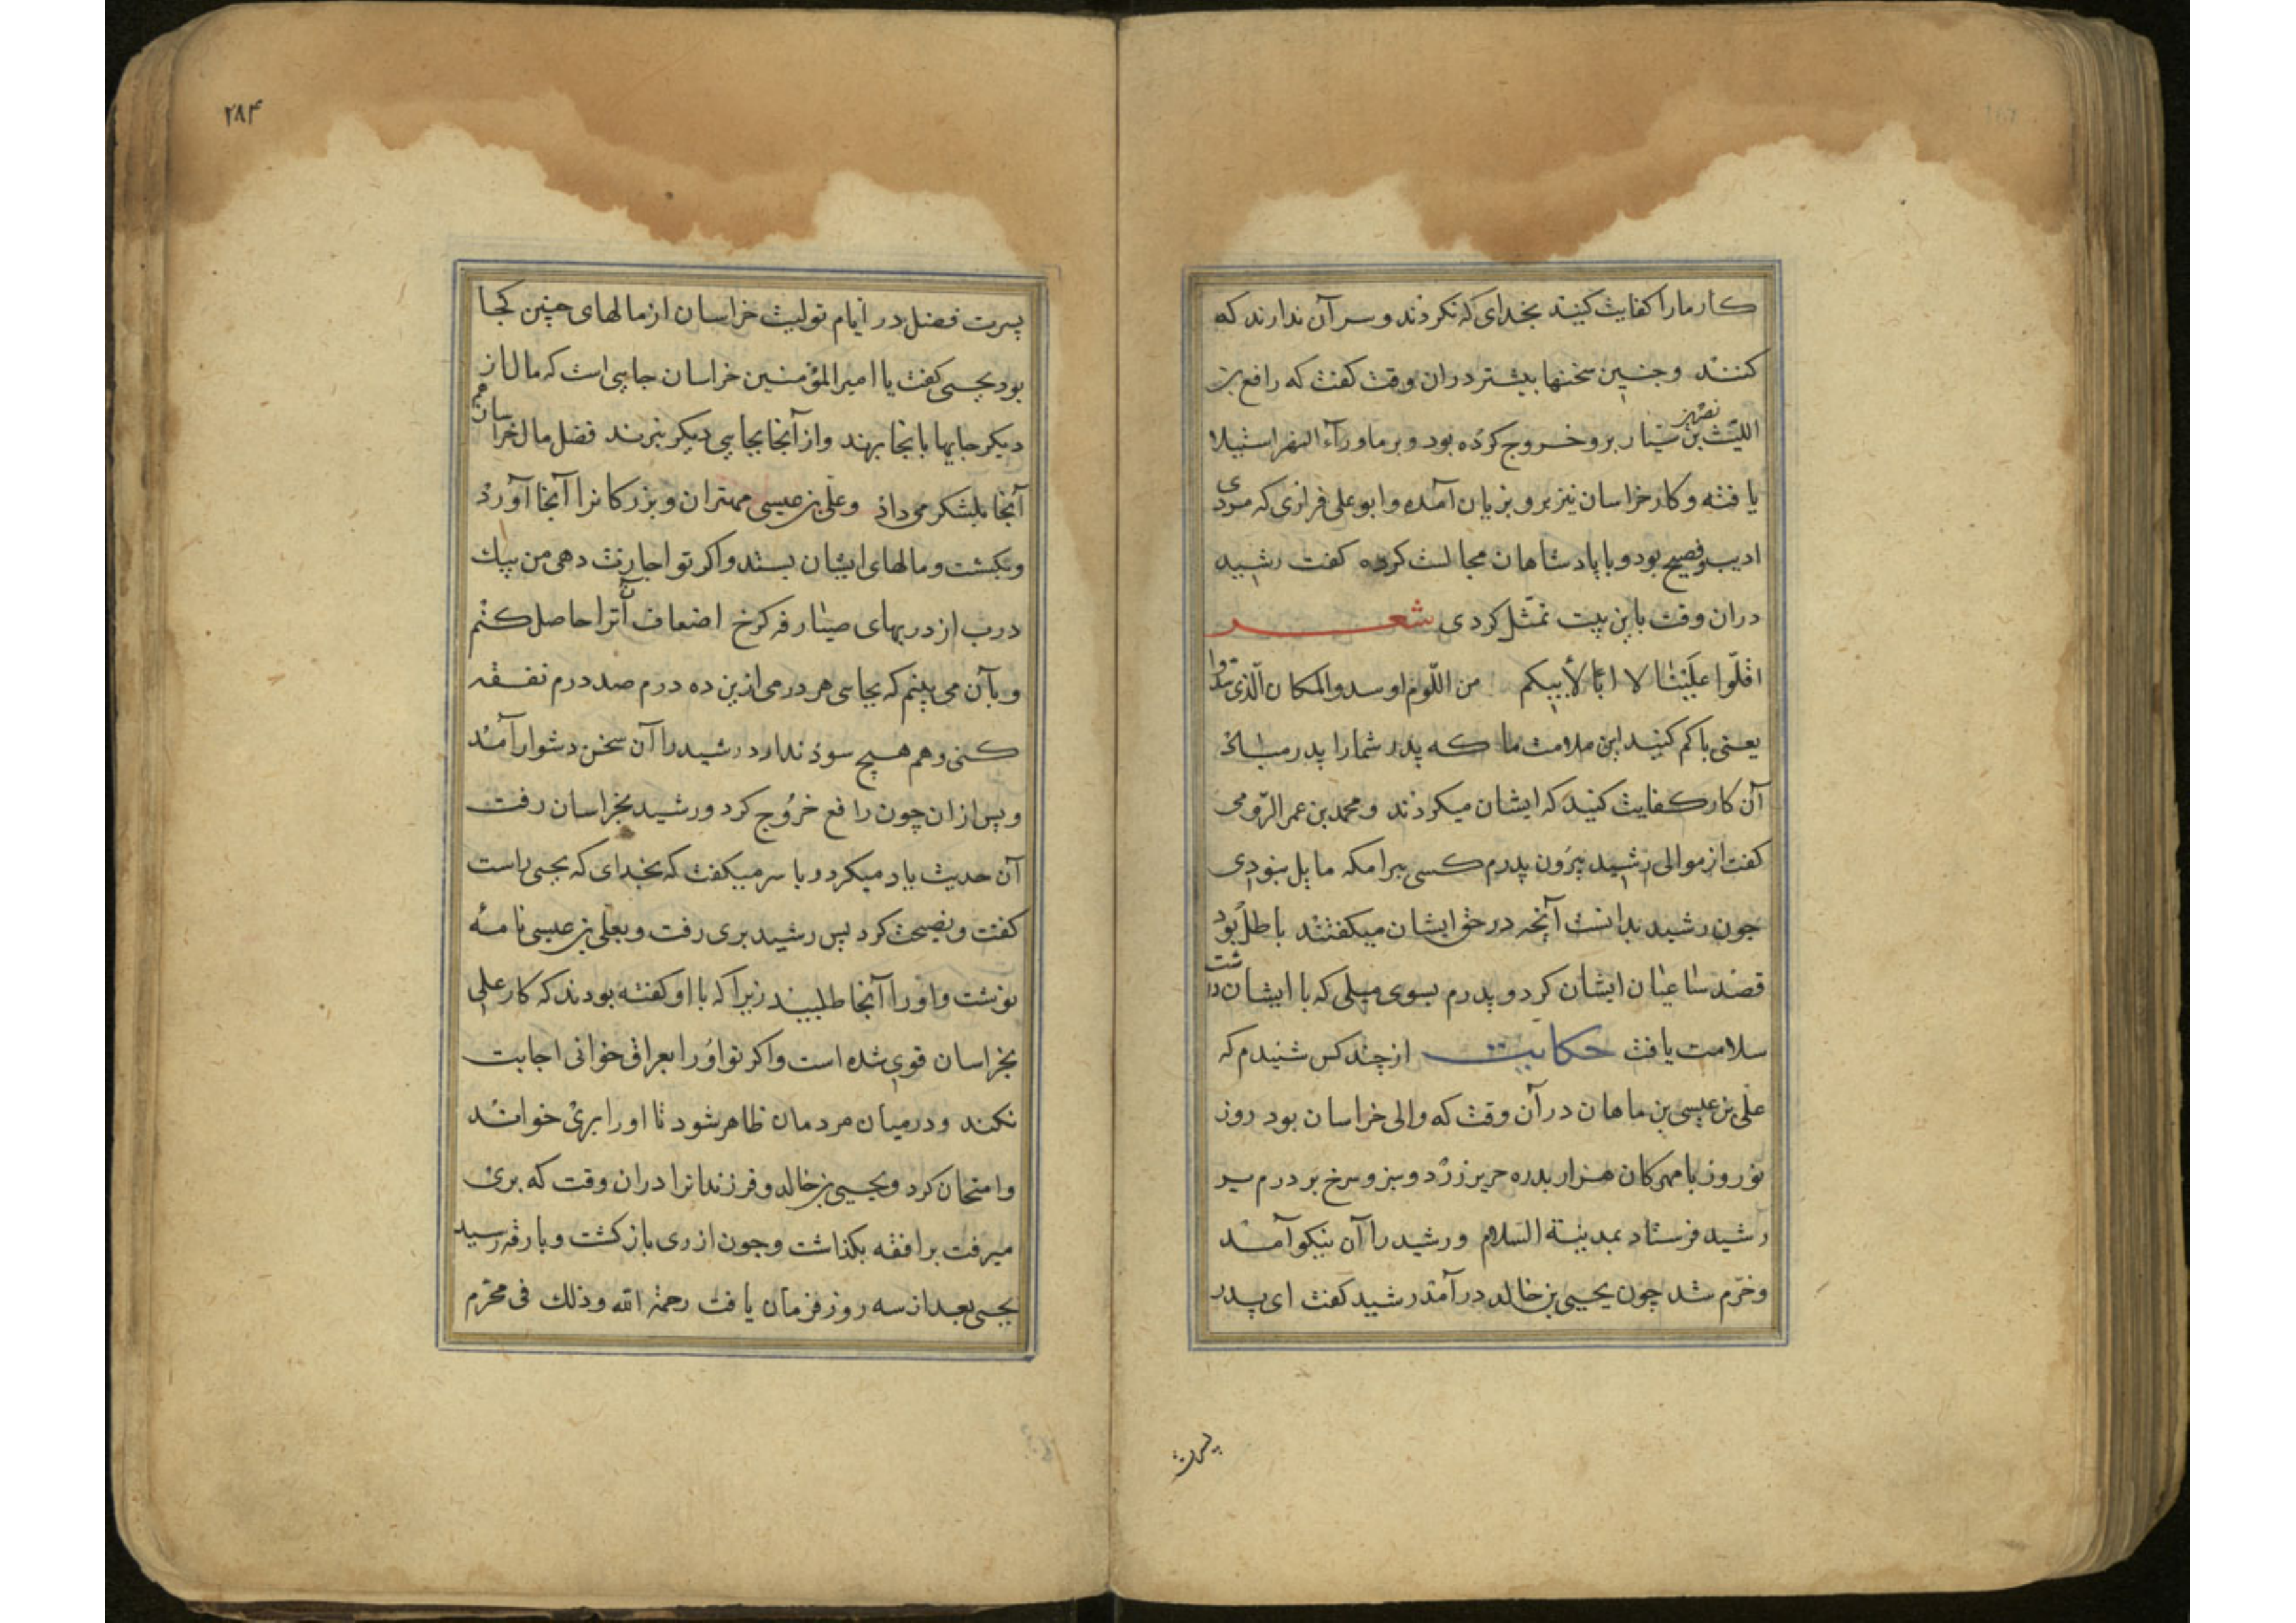 کار ما را کفایت کنید بخدای که نکردند و سر آن ندارند که
کنند و جنین سخنها بیشتر دران وقت کفت که رافع بن
اللیث بن نصر بن سیّار برو خروج کرده بود و بر ماورآء النهر استیلا
یافته و کار خراسان نیز برو بزیان آمده و ابو علی فرازی که مردی
ادیب و فصیح بود و با پادشاهان مجالست کرده کفت رشید
دران وقت باین بیت تمثّل کردی شعر
اقلّوا علینا لا ابا لأبیکم من اللّوم او سدوا المکان الّذی سدّوا
یعنی با کم کنید این ملامت ما که پدر شما را پدر مباد
آن کار کفایت کنید که ایشان میکردند و محمد بن عمر الرّومی
کفت از موالی رشید بیرون پدرم کسی ببرامکه مایل نبودی
جون رشید بدانست آنجه در حق ایشان میکفتند باطل بود
قصد ساعیان ایشان کرد و پدرم بسوی میلی که با ایشان داشت
سلامت یافت حکایت از چند کس شنیدم که
علی بن عیسی بن ماهان در آن وقت که والی خراسان بود روز
نوروز با مهرکان هزار بدره حریر زرد و سبز و سرخ بر درم بر
رشید فرستاد بمدینة السّلام و رشید را آن نیکو آمد
و خرّم شد چون یحیی بن خالد درآمد رشید کفت ای پدر
پسرت
۲۸۴
پسرت فضل در ایّام تولیت خراسان از مالهای چنین کجا
بود یحیی کفت یا امیر المؤمنین خراسان جایی است که مال از
دیکر جایها بانجا برند و از آنجا بجایی دیکر نبرند فضل مال خراسان هم
آنجا بلشکر می‌داد و علی بن عیسی مهتران و بزرکانرا آنجا آورد
و بکشت و مالهای ایشان بستد و اکر تو اجازت دهی من بیک
درب از دربهای صیارفه کرخ اضعاف آنرا حاصل کنم
و بآن می بینم که بجای هر درمی ازین ده درم صد درم نفقه
کنی و هم هیچ سوذ ندارد رشید را آن سخن دشوار آمد
و پس از ان چون رافع خروج کرد و رشید بخراسان رفت
آن حدیث یاد میکرد و با سر میکفت که بخدای که یحیی راست
کفت و نصیحت کرد پس رشید بری رفت و بعلی بن عیسی نامه
نوشت و او را آنجا طلبید زیرا که با او کفته بودند که کار علی
بخراسان قوی شده است و اکر تو او را بعراق خوانی اجابت
نکند و در میان مردمان ظاهر شود تا او را بری خواند
و امتحان کرد و یحیی بن خالد و فرزندانرا دران وقت که بری
میرفت برافقه بکذاشت و جون از ری باز کشت و بارقه رسید
یحیی بعد از سه روز فرمان یافت رحمة الله و ذلک فی محرّم